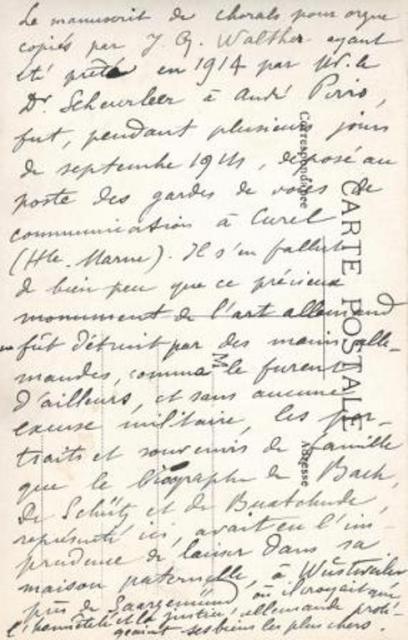 Le manuscrit de chorals pour orgue
copiés par J G. Walther ayant
été prêté en 1914 par M. le
Dr. Scheurleer à André Pirro,
fut, pendant plusieurs jours
de septembre 1914, déposé au
poste des gardes de voies de
communication à Curel
(Hte. Marne). Il s'en fallut
de bien peu que ce précieux
monument de l'art allemand
ne fût détruit par des mains alle-
mandes, comme le furent
d'ailleurs, et sans aucune
excuse militaire, les por-
traits et souvenirs de famille
que le biographe de Bach,
de Schütz et de Buxtehude,
représenté ici, avait eu l'im-
prudence de laisser dans sa
maison paternelle, à Wustweiler
près de Saargemünd, où il croyait que
l'honnêteté et la justice allemande proté-
geaient ses biens les plus chers.
CARTE POSTALE
Correspondance
Adresse
M